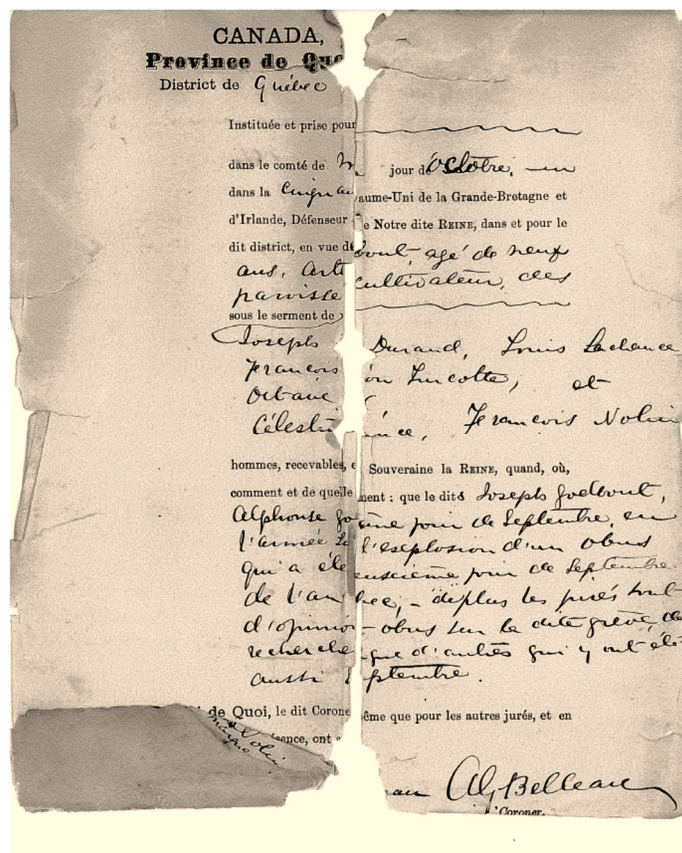 CANADA,
Province de Que
District de Québec
Instituée et prise pour
dans le comté de jour de Octobre, en
dans la Cinquan aume-Uni de la Grande-Bretagne et
d'Irlande, Défenseur e Notre dite REINE, dans et pour le
dit district, en vue de bout, agé de neuf
ans, Arth cultivateur, des
paroisse
sous le serment de
Joseph Durand, Louis Lachance
François on Turcotte, et
Octave
Célestin ance, François Nolin
hommes, recevables, e Souveraine la REINE, quand, où,
comment et de quelle ment : que le dits Joseph Godbout,
Alphonse Go ème jour de Septembre, en
l'année l'explosion d'un obus
qui a été euxième jour de Septembre
de l'an bec, – déplus les jurés sont
d'opinion obus sur la dite grève, de
recherche que d'autres qui y ont été
aussi ptembre.
de Quoi, le dit Corone ême que pour les autres jurés, et en
sence, ont
Nolin
marque
Belleau
Coroner.